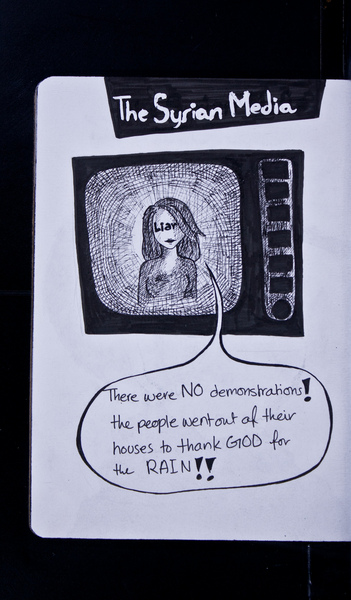 The Syrian Media
Liar
There were NO demonstrations!
the people went out of their
houses to thank GOD for
the RAIN!!